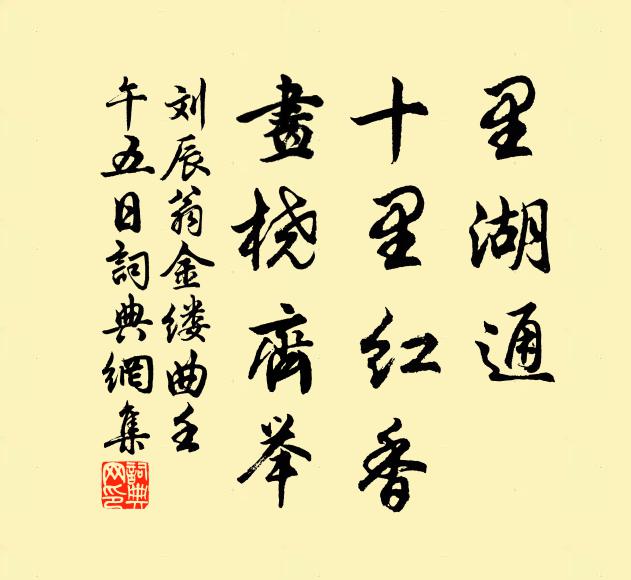 里湖通
十里红香
畫桡齊举
刘辰翁金缕曲壬
午五日詞典網集
詞典网印